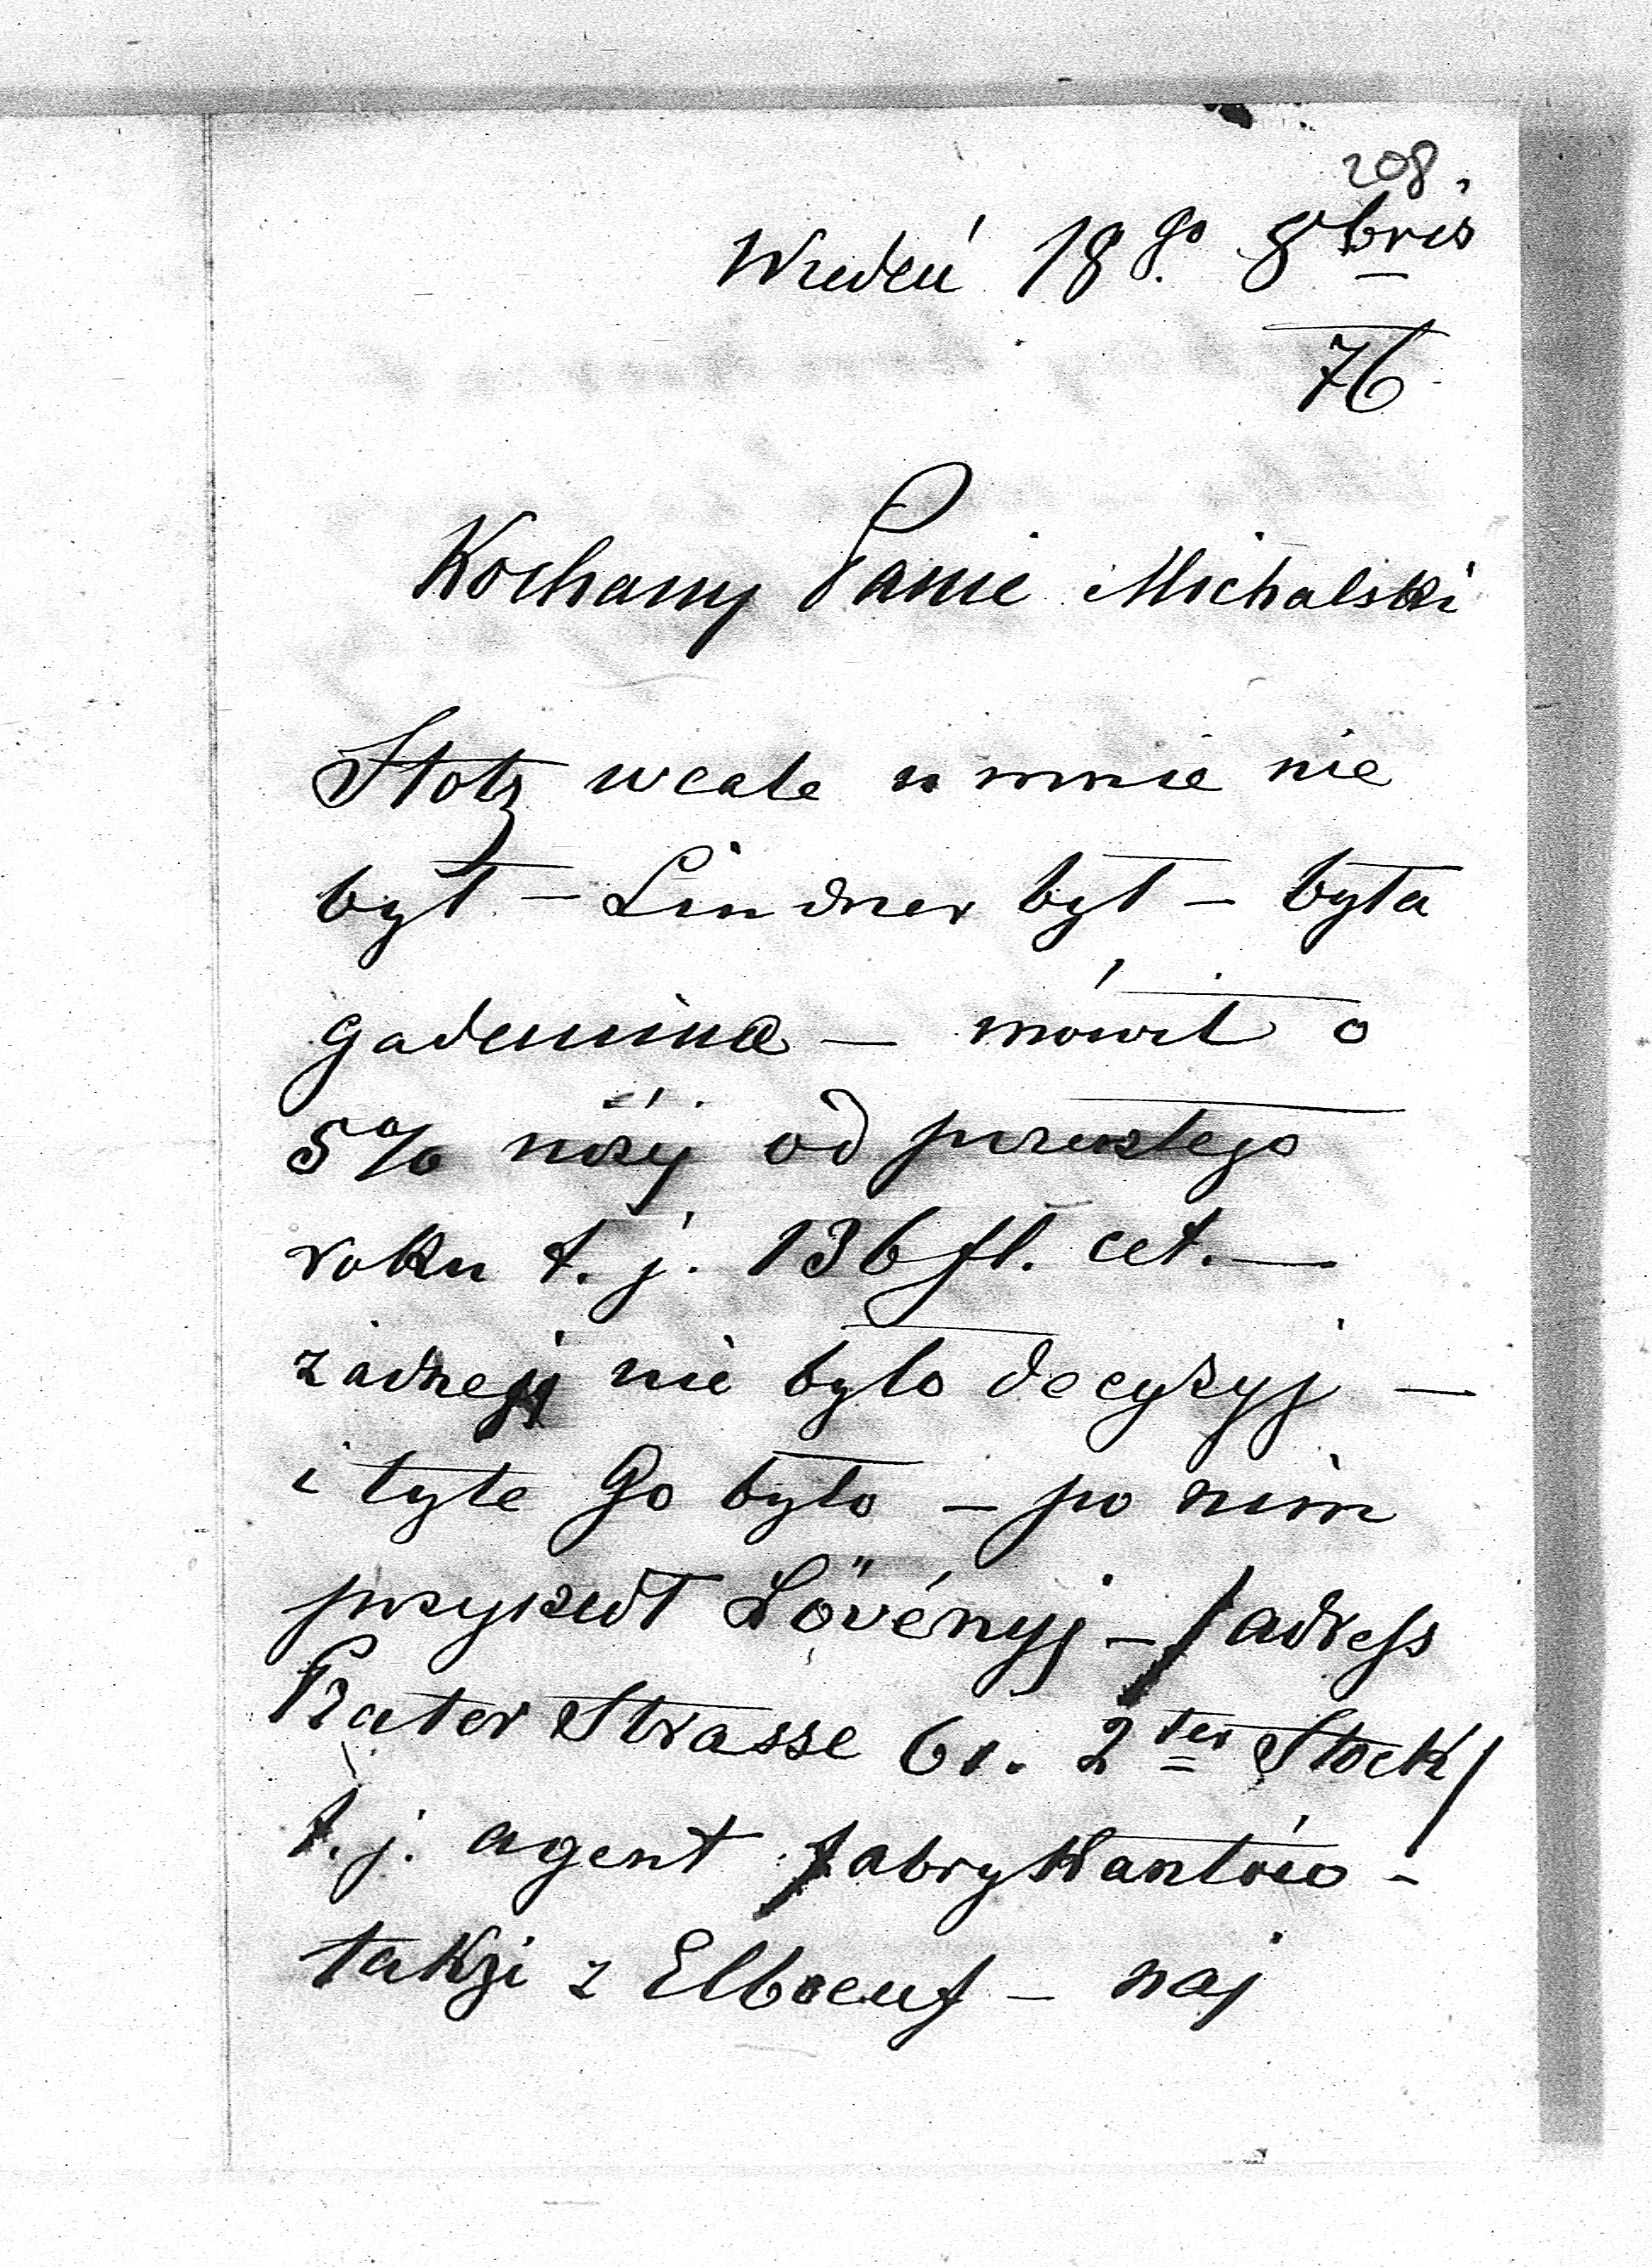 208.
Wiedeń 18go. 8bris
76
Kochany Panie Michalski
Stotz wcale u mnie nie
był – Lindner był – była
gadanina – mówił o
5% niżej od przeszłego
roku t. j. 136 fl. cet. –
żadnej nie było decyzyj –
i tyle Go było – po nim
przyszedł Lövényj – / adress
Prater Strasse 61. 2ter Stock /
t. j. agent fabrykantów –
takżi z Elboeuf – naj